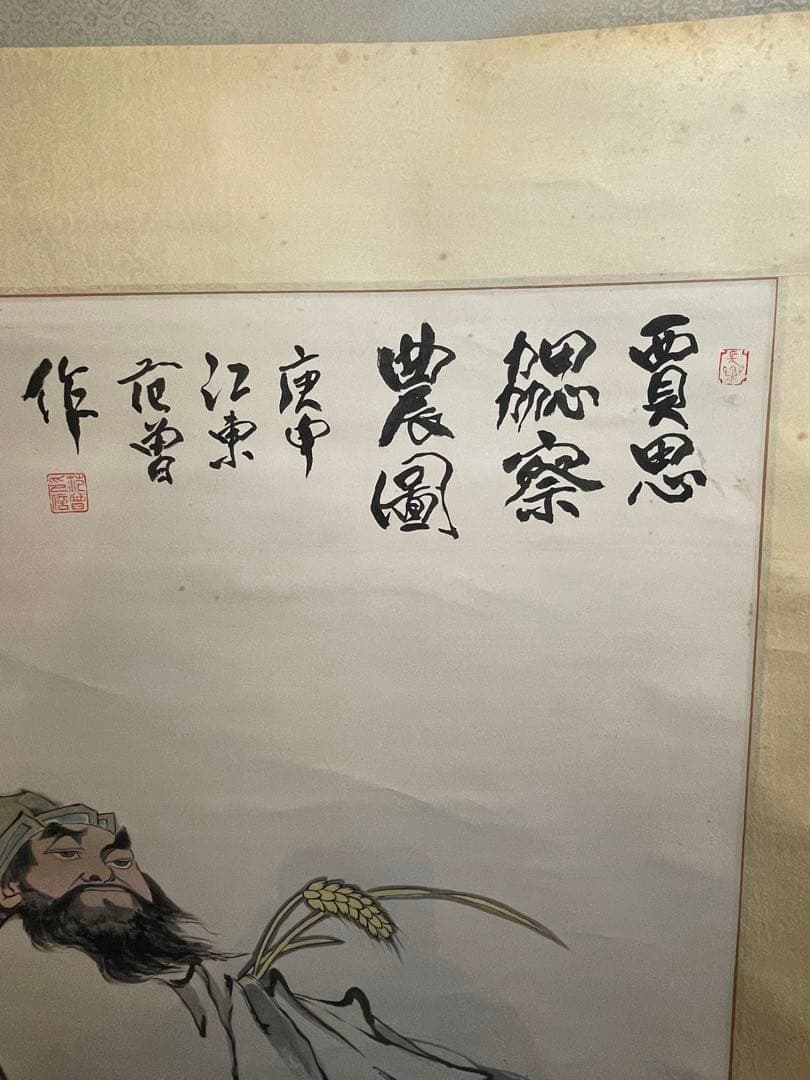 賈思
勰察
農圖
庚申
江東
范曾
作